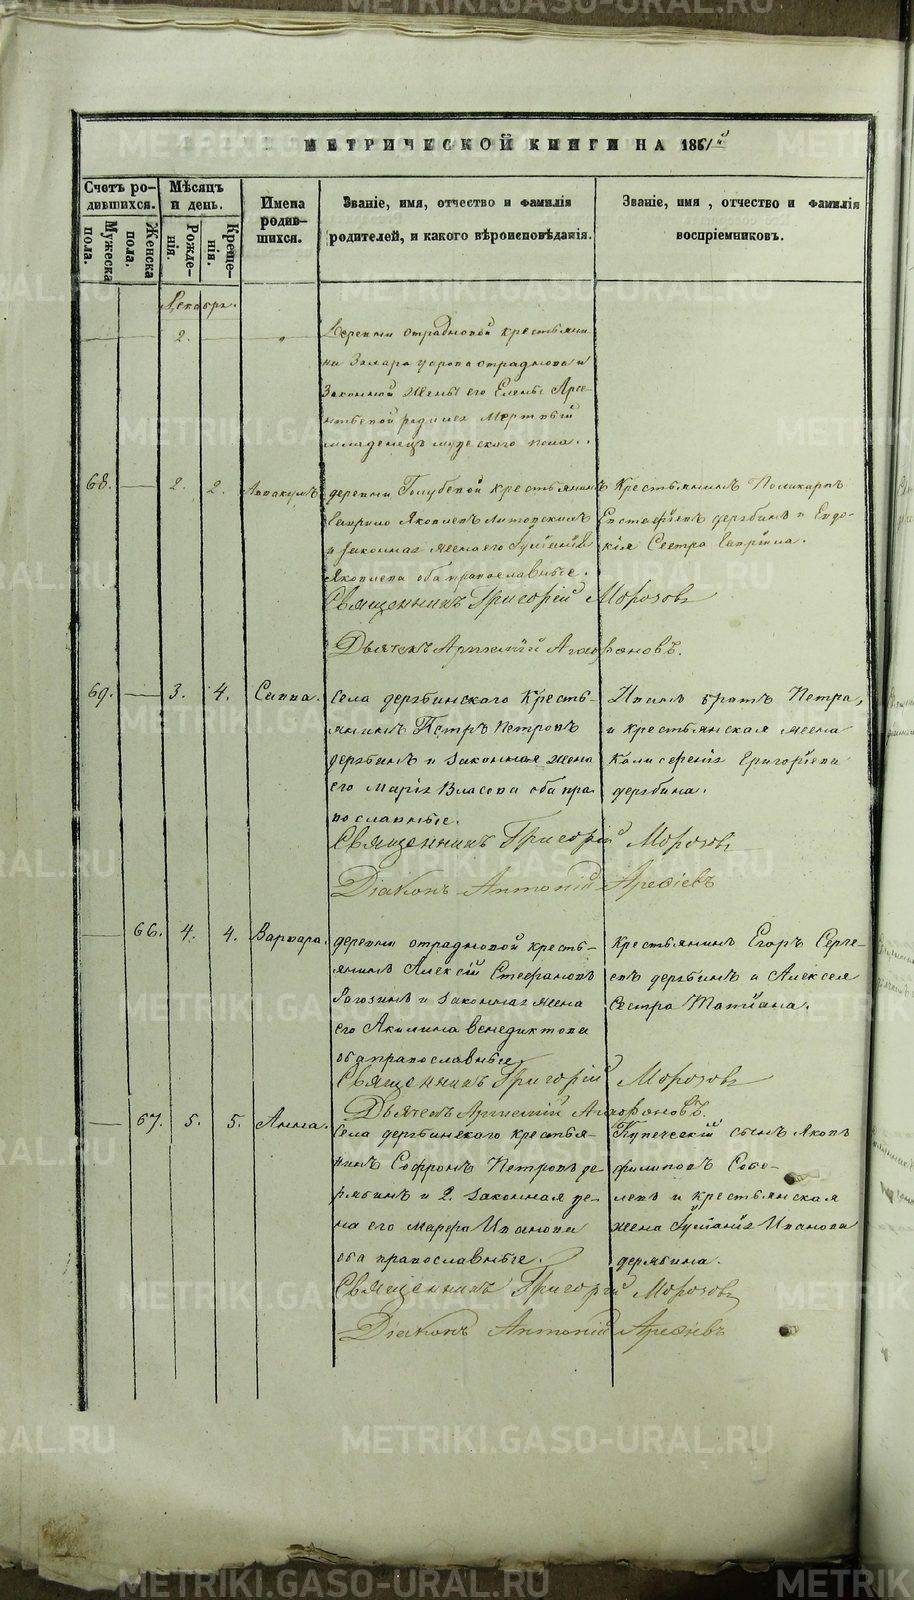 METRIKI.GASO-URAL.RU
МЕТРИЧЕСКОЙ КНИГИ НА 1861й
Счетъ родившихся.
Мужеска пола.
Женска пола.
Мѣсяцъ и день.
Рожденія.
Крещенія.
Имена родившихся.
Званіе, имя, отчество и фамилія родителей, и какого вѣроисповѣданія.
Званіе, имя, отчество и фамилія воспріемниковъ.
Декабрь.
2.
деревни Отрадновой крестьяни-
на
законной жены его Елены Арсе-
нтьевой родился мертвый
младенецъ мужескаго пола.
68. 2. 2. Аввакумъ
деревни Голубевой крестьянинъ
Гаврило Яковлевъ
и законная жена его Гуліанія
Яковлева оба православные.
Крестьянинъ Поликарпъ
Евстафіевъ дерябинъ и Евдо-
кія сестра Гавріила.
Священникъ Григорій Морозовъ
Дьячекъ Артемій Агафоновъ.
69. 3. 4. Савва.
села дерябинскаго кресть-
янинъ Петръ Петровъ
дерябинъ и законная жена
его Марія Власова оба пра-
вославные.
Иванъ братъ Петра,
и крестьянская жена
Калисфенія Григоріева
дерябина.
Священникъ Григорій Морозовъ
Діаконъ Антоній Арефіевъ
66. 4. 4. Варвара.
деревни отрадновой кресть-
янинъ Алексій Стефановъ
Рагозинъ и законная жена
его Акилина Венедиктова
оба православные.
Крестьянинъ Егоръ Сергѣ-
евъ дерябинъ и Алексея
сестра Татіана.
Священникъ Григорій Морозовъ
Дьячекъ Артемій Агафоновъ.
67. 5. 5. Анна.
села дерябинскаго крестья-
нинъ Софронъ Петровъ де-
рябинъ и 2. законная же-
на его Марфа Иванова
оба православные.
Купеческій сынъ Яковъ
филиповъ Собо-
левъ и крестьянская
жена Гуліанія Иванова
дерябина.
Священникъ Григорій Морозовъ
Діаконъ Антоній Арефіевъ